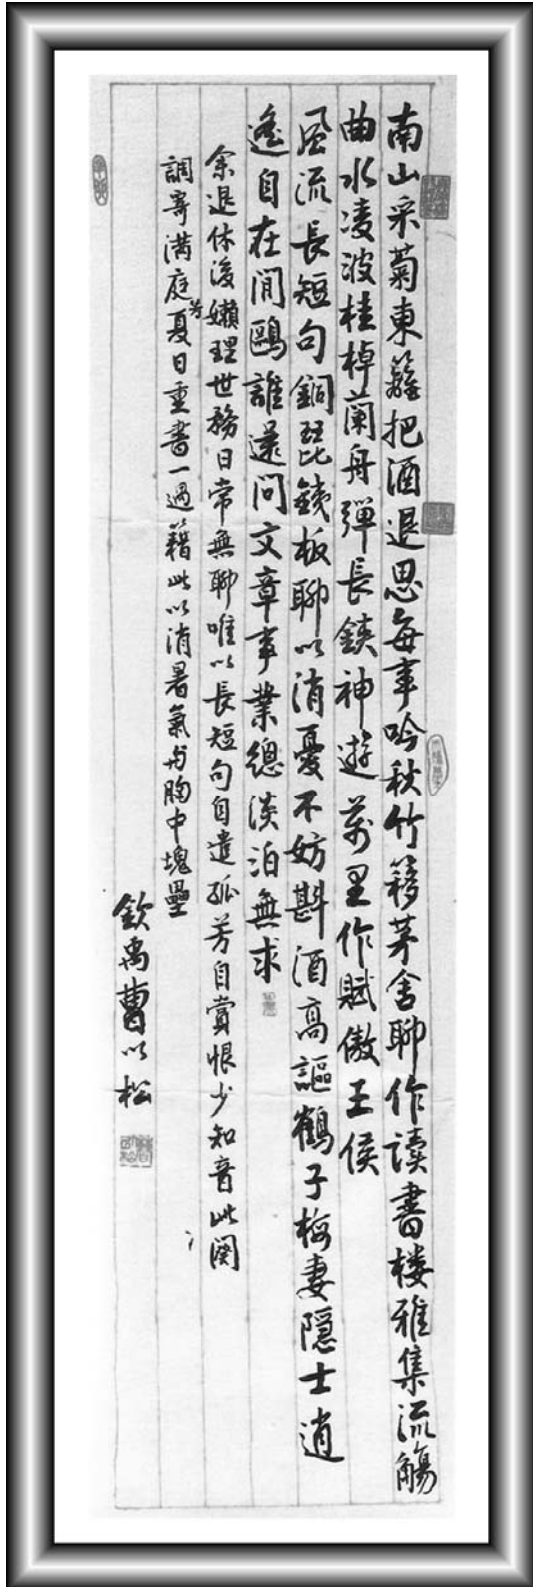 南山采菊東籬把酒退思每事吟秋竹籬茅舍聊作讀書楼雅集流觴
曲水凌波桂棹蘭舟彈長鋏神遊萬里作賦傲王侯
風流長短句銅琵鐵板聊以消憂不妨斟酒高謳鶴子梅妻隱士逍
遙自在閒鷗誰還問文章事業總淡泊無求
余退休後嬾理世務日常無聊唯以長短句自遣孤芳自賞恨少知音此闋
調寄满庭芳夏日重書一過藉此以消暑氣与胸中塊壘
欽禹曹以松